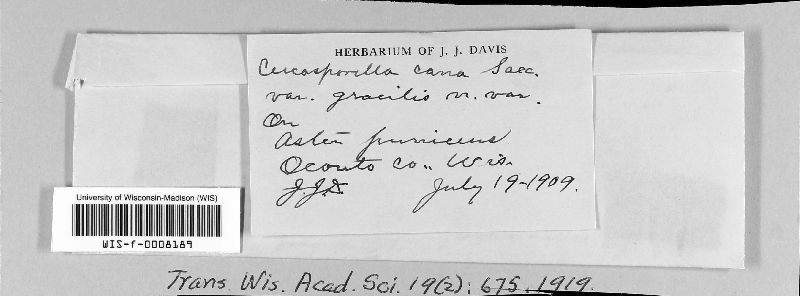 HERBARIUM OF J. J. DAVIS
Cercosporella cana Sacc.
var. gracilis n. var.
On
Aster puniceus
Oconto co., Wis.
J.J.D. July 19-1909.
University of Wisconsin-Madison (WIS)
WIS-f-0008189
Trans. Wis. Acad. Sci. 19(2): 675. 1919.